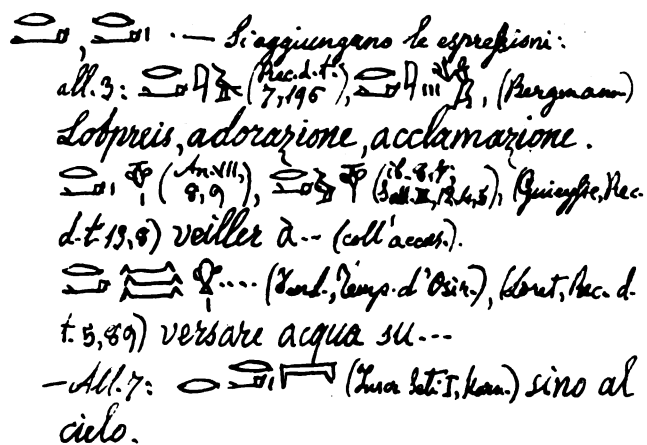 𓂋𓂝, 𓂋𓂝𓏤 . — Si aggiungano le espressioni:
all. 3: 𓂋𓂝 (Rec. d. t. 7,196), 𓂋𓂝 (Bergmann)
Lobpreis, adorazione, acclamazione.
𓂋𓂝𓏤 (An. VII, 8,9), 𓂋𓂝 (Sall. II, (Rec.
d. t. 13,8) veiller à... (coll'accus.).
𓂋𓂝 𓈗 .... Temp. d'Osir.), (Loret, Rec. d.
t. 5,89) versare acqua su...
— All. 7: 𓂋 𓂋𓂝𓏤 𓇯 Seti I, Karn.) sino al
cielo.